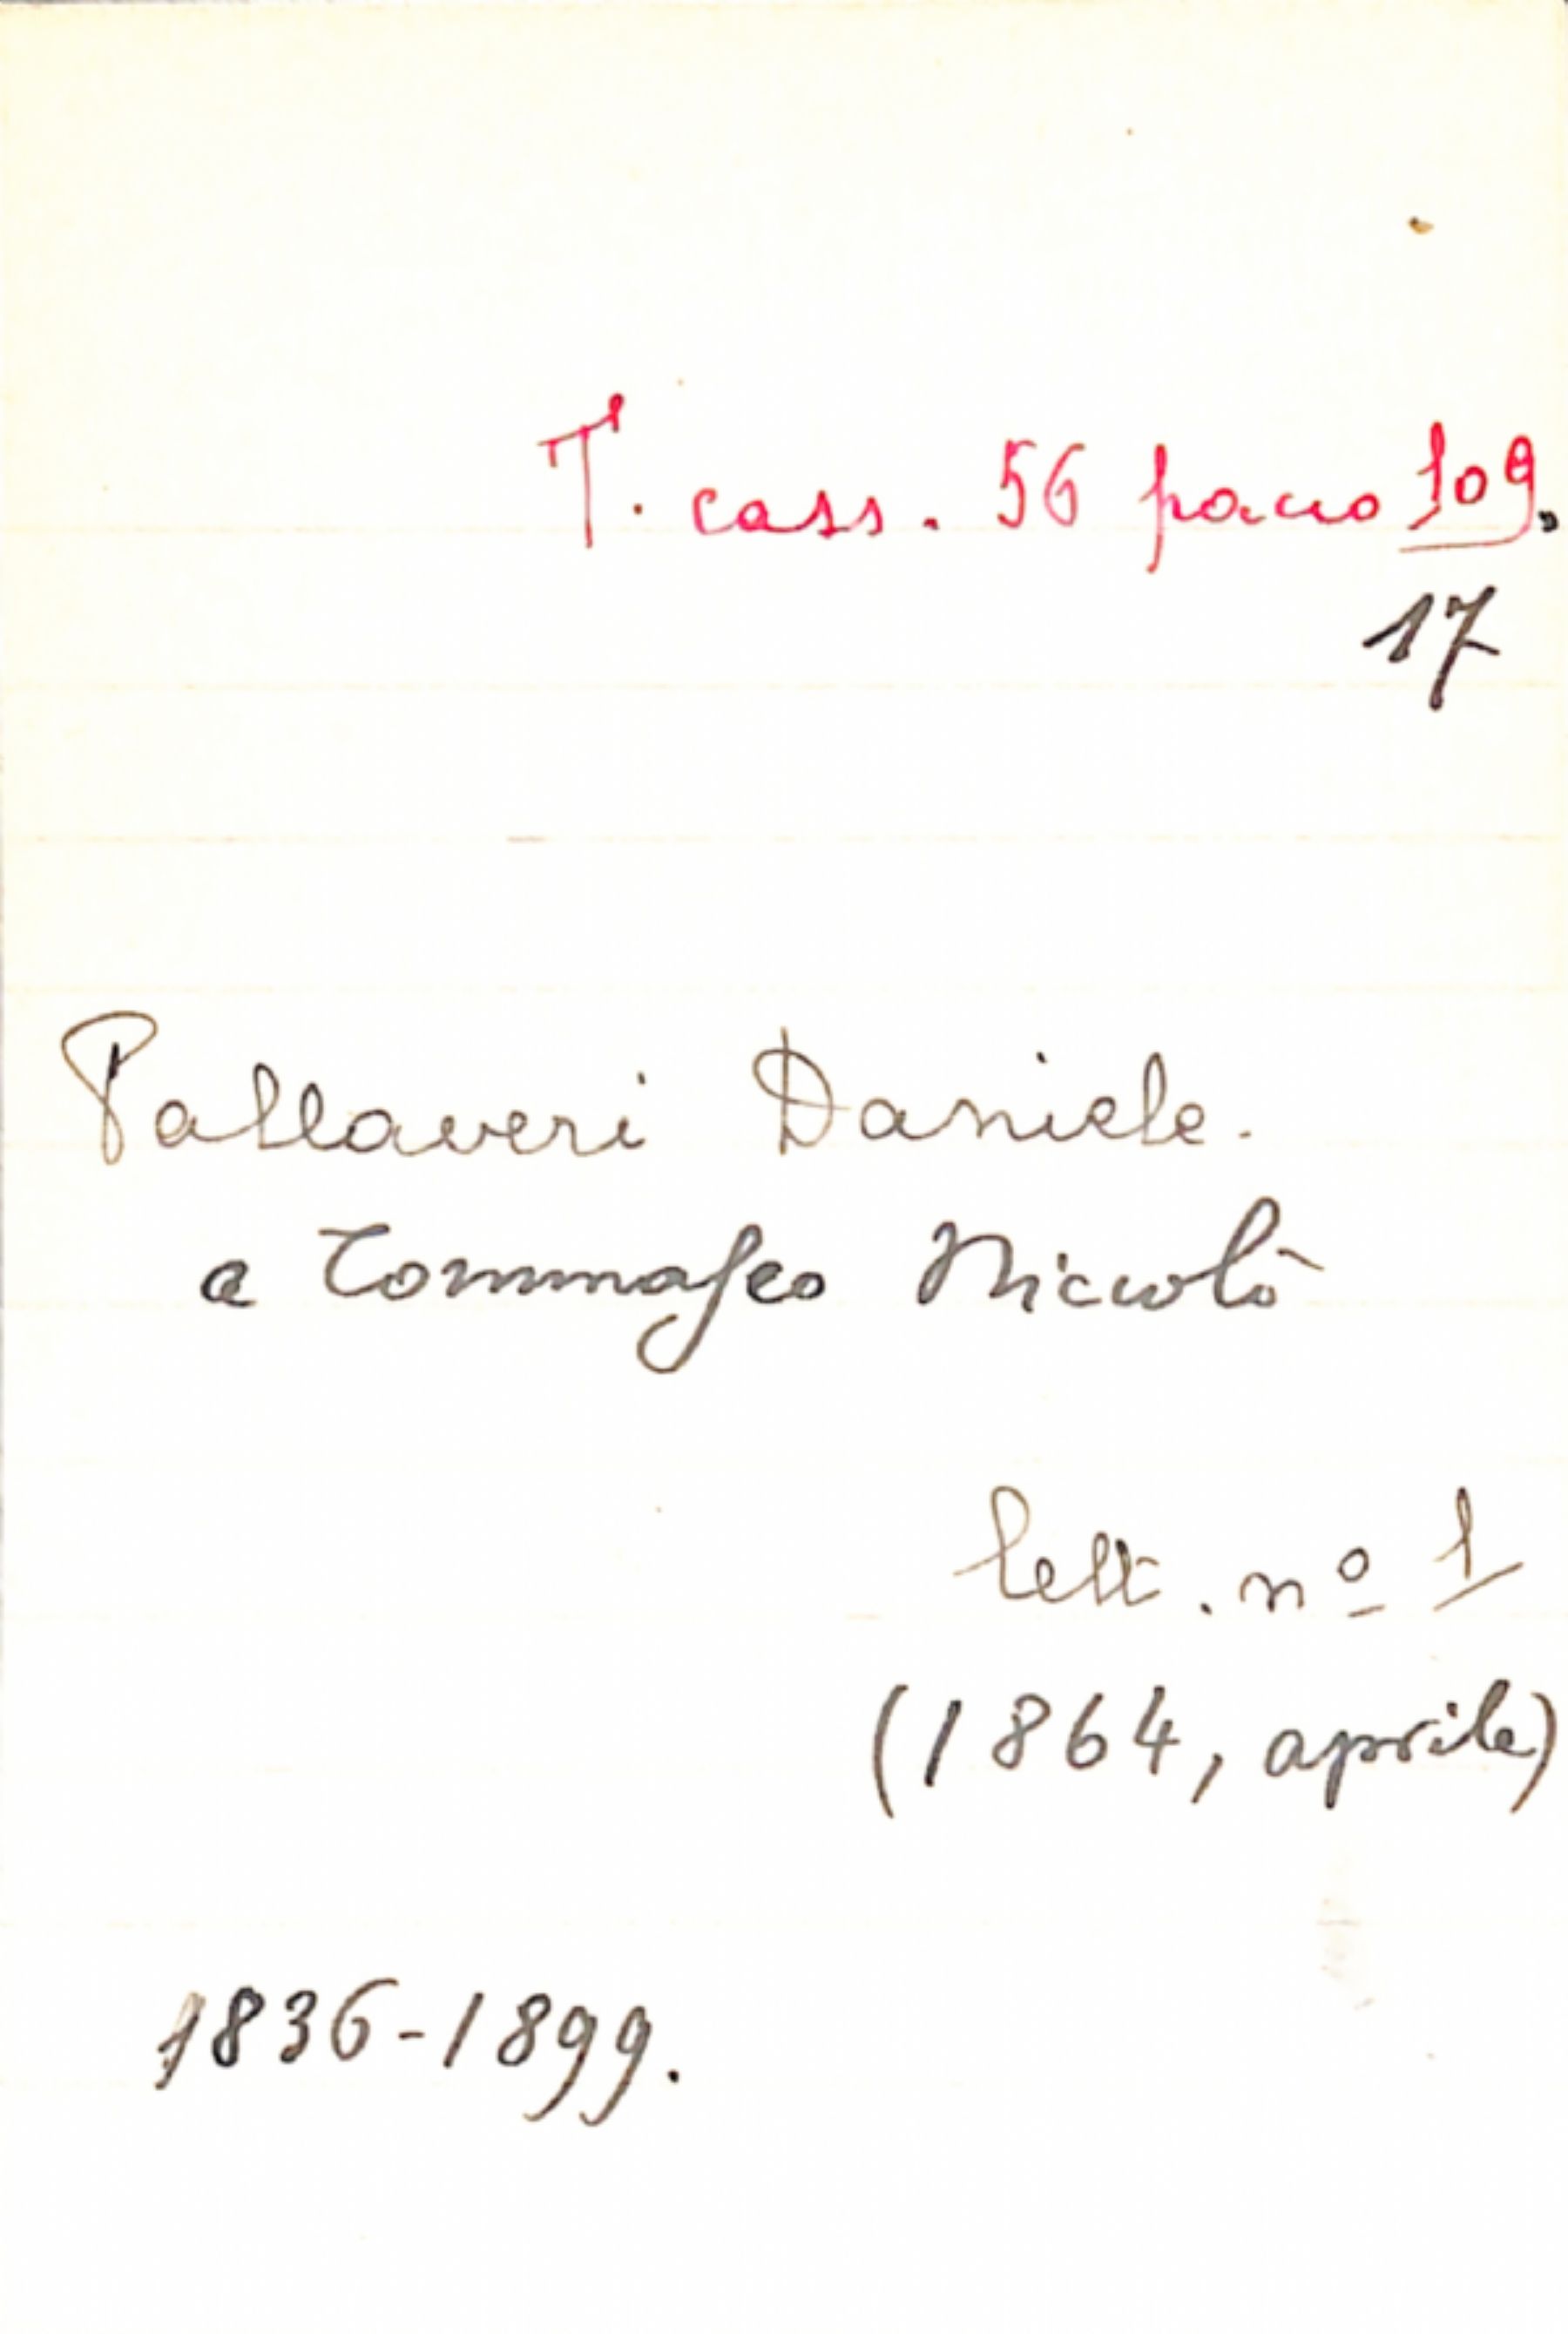 T. cass. 56 pacco 109.
17
Pallaveri Daniele.
a Tommaseo Niccolò
lett. nº 1
(1864, aprile)
1836-1899.